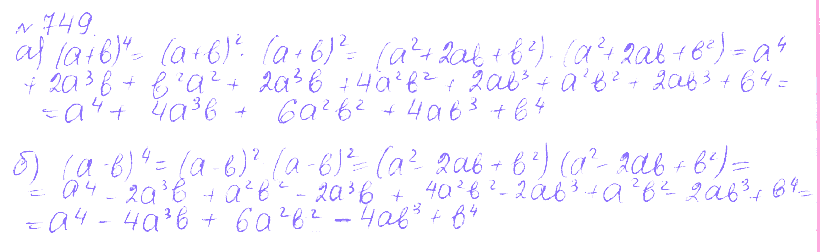 № 749.
а) (a+b)⁴ = (a+b)² · (a+b)² = (a²+2ab+b²) · (a²+2ab+b²) = a⁴
+ 2a³b + b²a² + 2a³b + 4a²b² + 2ab³ + a²b² + 2ab³ + b⁴ =
= a⁴ + 4a³b + 6a²b² + 4ab³ + b⁴
б) (a-b)⁴ = (a-b)² (a-b)² = (a² - 2ab + b²) (a² - 2ab + b²) =
= a⁴ - 2a³b + a²b² - 2a³b + 4a²b² - 2ab³ + a²b² - 2ab³ + b⁴ =
= a⁴ - 4a³b + 6a²b² - 4ab³ + b⁴